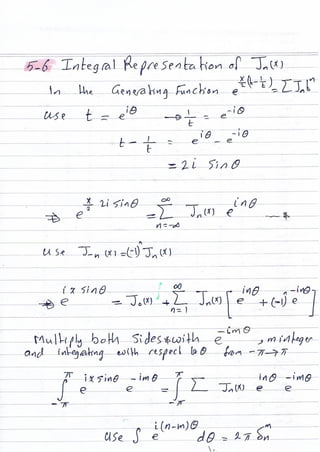 5-6 Integral Representation of J_n(x)
In the Generating Function e^{x/2(t-1/t)} = Σ J_n t^n
use t = e^{iθ} → 1/t = e^{-iθ}
t - 1/t = e^{iθ} - e^{-iθ}
= 2i Sinθ
⇒ e^{x/2 2i Sinθ} = Σ_{n=-∞}^{∞} J_n(x) e^{inθ} — *
use J_{-n}(x) = (-1)^n J_n(x)
⇒ e^{ix Sinθ} = J_0(x) + Σ_{n=1}^{∞} J_n(x) [e^{inθ} + (-1)^n e^{-inθ}]
Multiply both Sides * with e^{-imθ}, m integer
and integrating with respect to θ from -π→π
∫_{-π}^{π} e^{ix Sinθ} e^{-imθ} = ∫_{-π}^{π} Σ J_n(x) e^{inθ} e^{-imθ}
use ∫ e^{i(n-m)θ} dθ = 2π δ_n^m